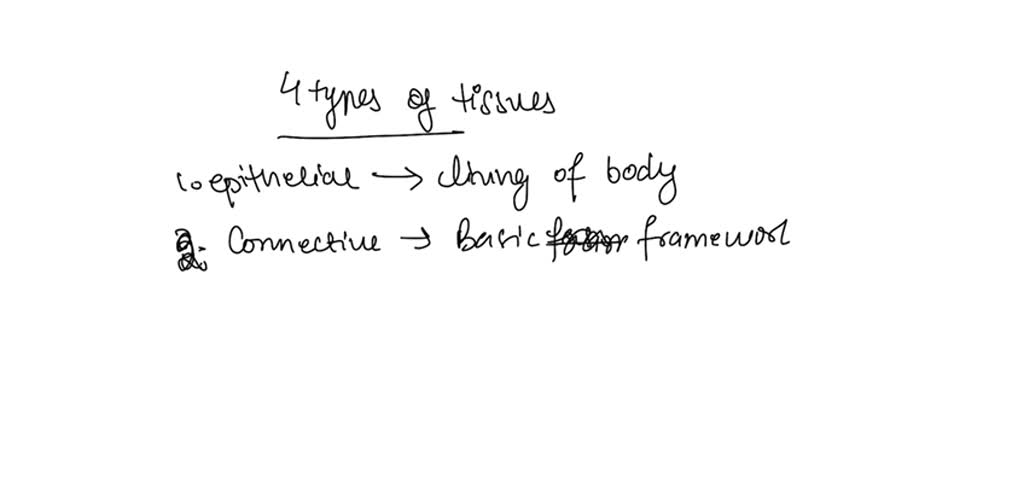 4 types of tissues
1. epithelial → lining of body
2. Connective → Basic framework